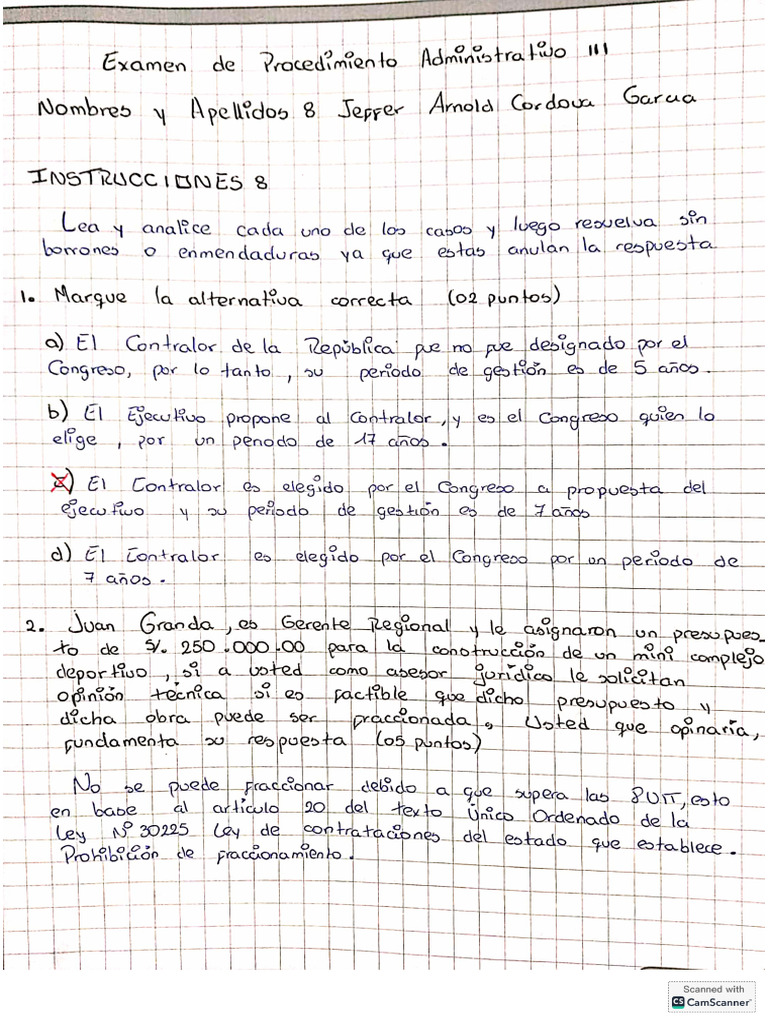 Examen de Procedimiento Administrativo III
Nombres y Apellidos 8 Jeffer Arnold Cordova Garcia
INSTRUCCIONES 8
Lea y analice cada uno de los casos y luego resuelva sin
borrones o enmendaduras ya que estas anulan la respuesta
1. Marque la alternativa correcta (02 puntos)
a) El Contralor de la República fue no fue designado por el
Congreso, por lo tanto, su periodo de gestión es de 5 años.
b) El Ejecutivo propone al Contralor, y es el Congreso quien lo
elige, por un periodo de 17 años.
c) El Contralor es elegido por el Congreso a propuesta del
ejecutivo y su periodo de gestión es de 7 años
d) El Contralor es elegido por el Congreso por un periodo de
7 años.
2. Juan Granda, es Gerente Regional y le asignaron un presupues
to de S/. 250.000.00 para la construcción de un mini complejo
deportivo, si a usted como asesor jurídico le solicitan
opinión técnica si es factible que dicho presupuesto y
dicha obra puede ser fraccionada, Usted que opinaría,
fundamenta su respuesta (05 puntos)
No se puede fraccionar debido a que supera las 8UIT, esto
en base al artículo 20 del texto Único Ordenado de la
Ley Nº 30225 Ley de contrataciones del estado que establece.
Prohibición de fraccionamiento.
Scanned with
CS CamScanner